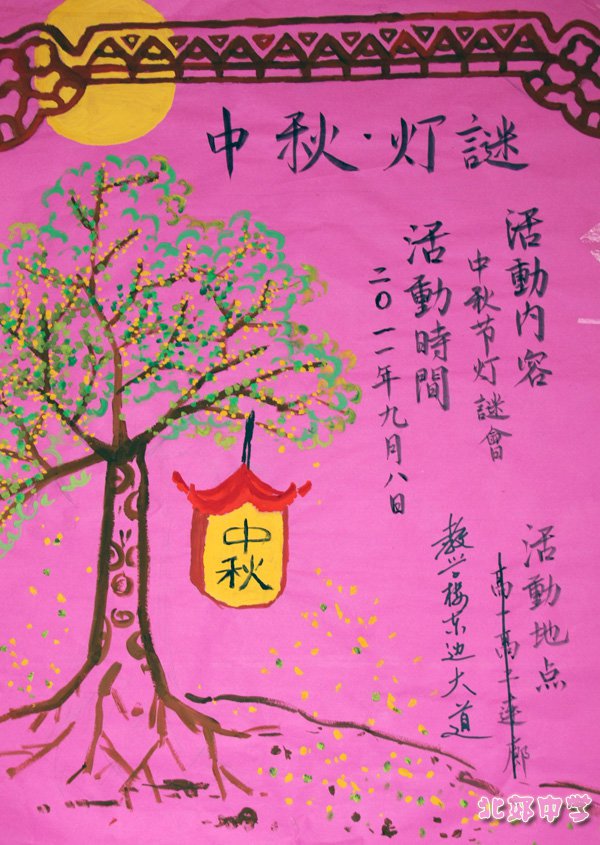 中秋·灯謎
活動内容
中秋节灯謎會
活動時間
二〇一一年九月八日
活動地点
高一高二连廊
教学楼东边大道
中秋
北郊中学